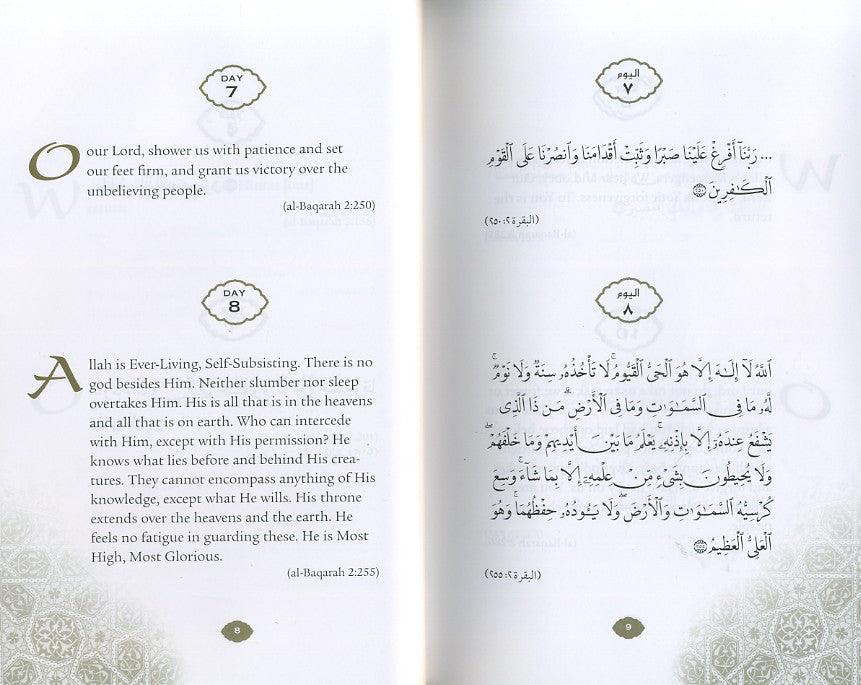 DAY
7
Oour Lord, shower us with patience and set
our feet firm, and grant us victory over the
unbelieving people.
(al-Baqarah 2:250)
DAY
8
Allah is Ever-Living, Self-Subsisting. There is no
god besides Him. Neither slumber nor sleep
overtakes Him. His is all that is in the heavens
and all that is on earth. Who can intercede
with Him, except with His permission? He
knows what lies before and behind His crea-
tures. They cannot encompass anything of His
knowledge, except what He wills. His throne
extends over the heavens and the earth. He
feels no fatigue in guarding these. He is Most
High, Most Glorious.
(al-Baqarah 2:255)
8
اليوم
٧
... رَبَّنَآ أَفْرِغْ عَلَيْنَا صَبْرًا وَثَبِّتْ أَقْدَامَنَا وَٱنصُرْنَا عَلَى ٱلْقَوْمِ
ٱلْكَـٰفِرِينَ ﴿٢٥٠﴾
(البقرة ٢: ٢٥٠)
اليوم
٨
ٱللَّهُ لَآ إِلَـٰهَ إِلَّا هُوَ ٱلْحَىُّ ٱلْقَيُّومُ ۚ لَا تَأْخُذُهُۥ سِنَةٌ وَلَا نَوْمٌ ۚ
لَّهُۥ مَا فِى ٱلسَّمَـٰوَٰتِ وَمَا فِى ٱلْأَرْضِ ۗ مَن ذَا ٱلَّذِى
يَشْفَعُ عِندَهُۥٓ إِلَّا بِإِذْنِهِۦ ۚ يَعْلَمُ مَا بَيْنَ أَيْدِيهِمْ وَمَا خَلْفَهُمْ ۖ
وَلَا يُحِيطُونَ بِشَىْءٍ مِّنْ عِلْمِهِۦٓ إِلَّا بِمَا شَآءَ ۚ وَسِعَ
كُرْسِيُّهُ ٱلسَّمَـٰوَٰتِ وَٱلْأَرْضَ ۖ وَلَا يَـُٔودُهُۥ حِفْظُهُمَا ۚ وَهُوَ
ٱلْعَلِىُّ ٱلْعَظِيمُ ﴿٢٥٥﴾
(البقرة ٢: ٢٥٥)
9